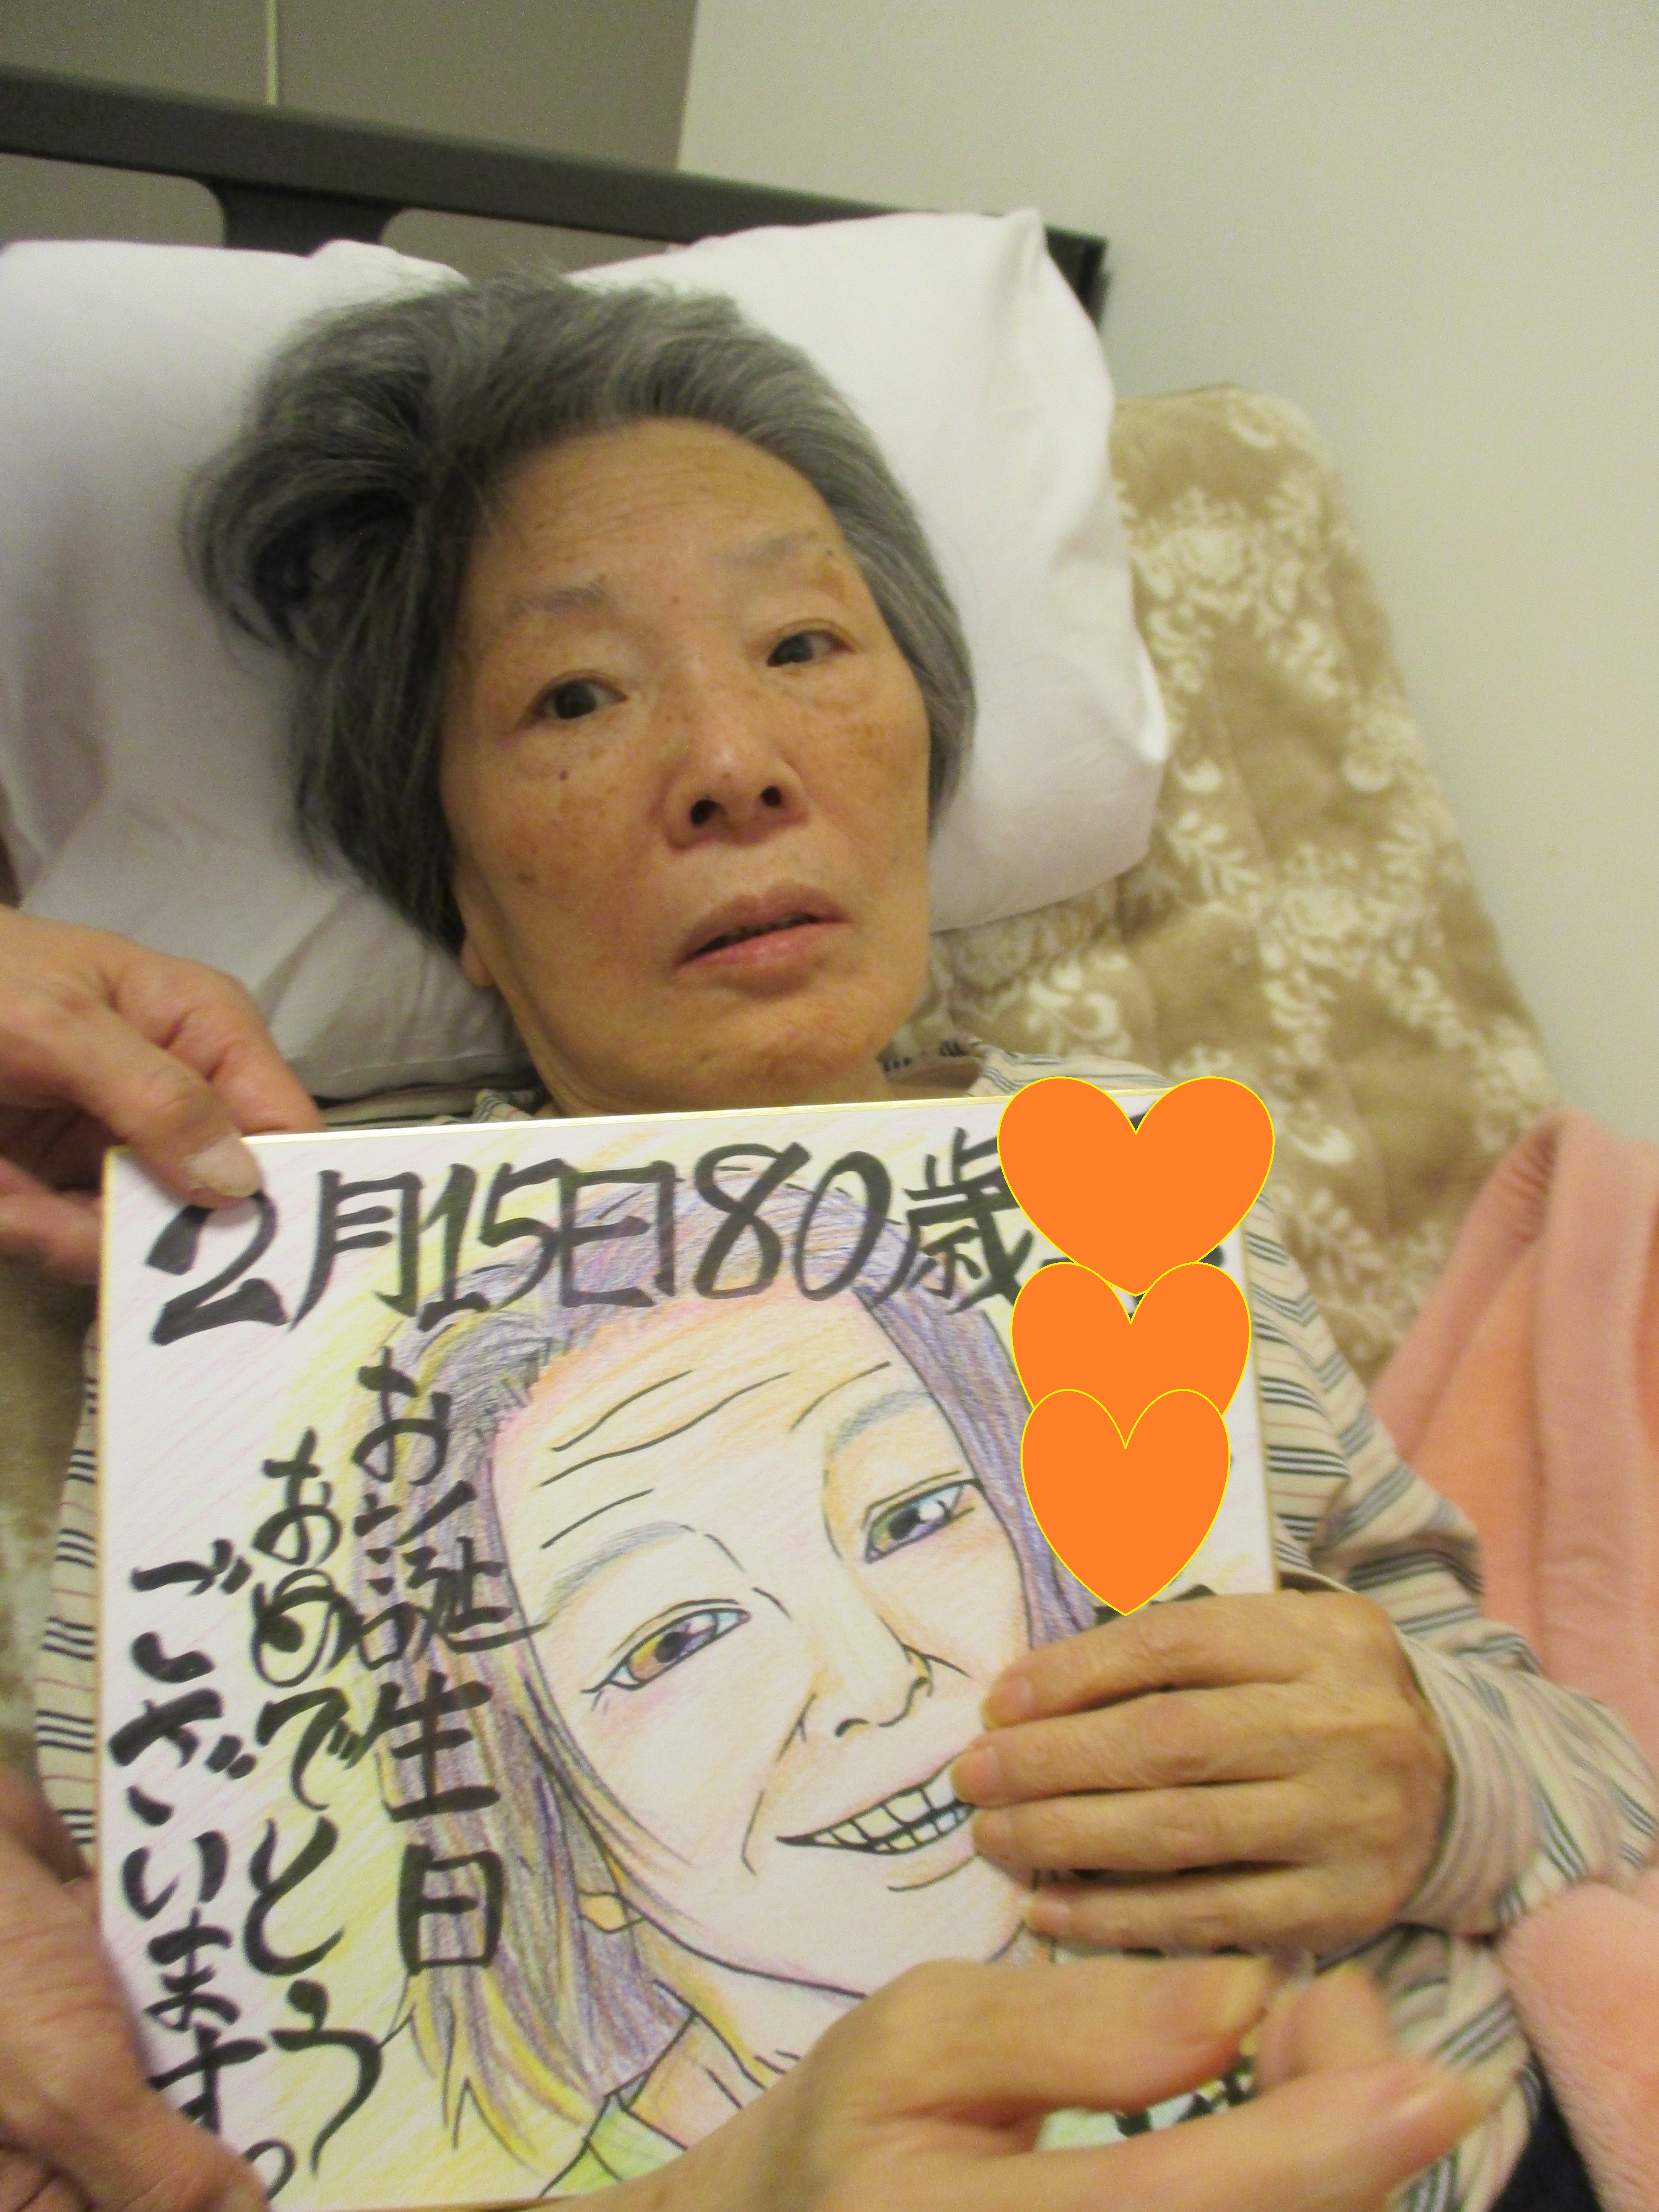 2月15日80歳
お誕生日
おめでとう
ございます。